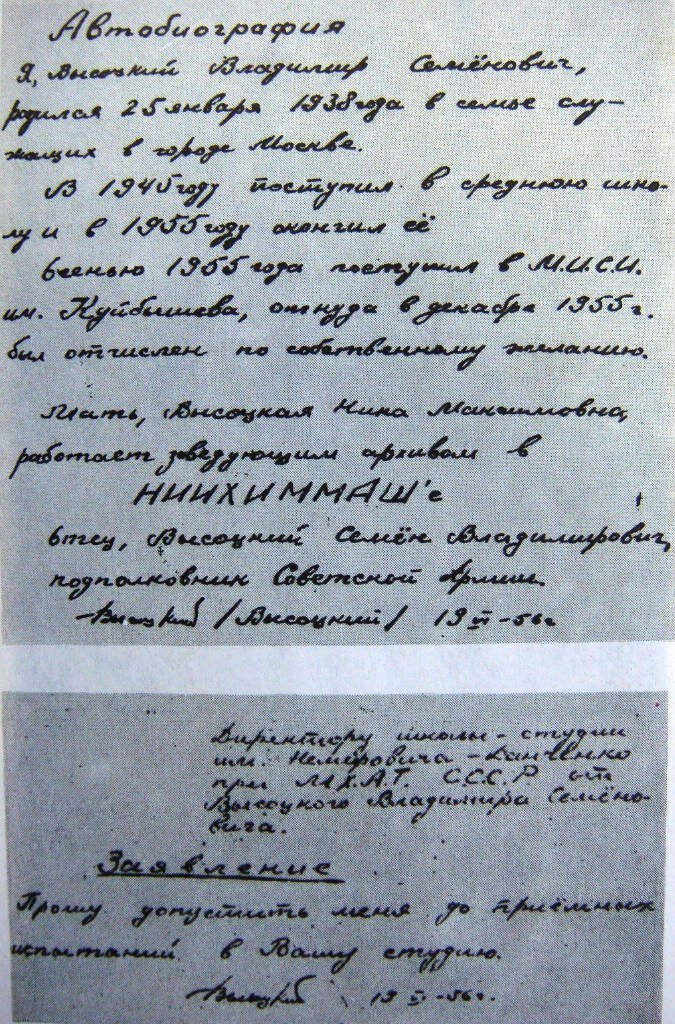 Автобиография
Я, Высоцкий Владимир Семёнович,
родился 25 января 1938 года в семье слу-
жащих в городе Москве.
В 1945 году поступил в среднюю шко-
лу и в 1955 году окончил её
Осенью 1955 года поступил в М.И.С.И.
им. Куйбышева, откуда в декабре 1955 г.
был отчислен по собственному желанию.
Мать, Высоцкая Нина Максимовна,
работает заведующим архивом в
НИИХИММАШ'е
Отец, Высоцкий Семён Владимирович,
подполковник Советской Армии.
Высоцкий /Высоцкий/ 19 VI-56г
Директору школы-студии
им. Немировича-Данченко
при М.Х.А.Т. С.С.С.Р от
Высоцкого Владимира Семёно-
вича.
Заявление
Прошу допустить меня до приёмных
испытаний в Вашу студию.
Высоцкий 19 VI-56г.